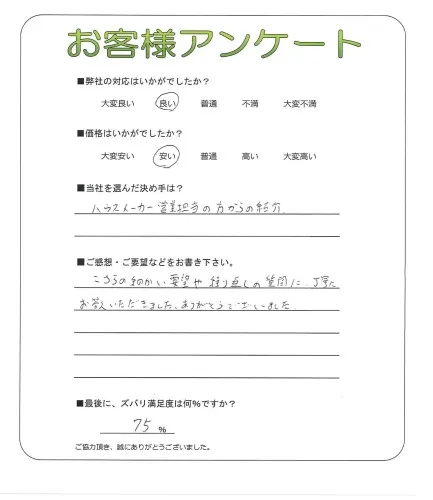 お客様アンケート
■弊社の対応はいかがでしたか?
大変良い 良い 普通 不満 大変不満
■価格はいかがでしたか?
大変安い 安い 普通 高い 大変高い
■当社を選んだ決め手は?
ハウスメーカー営業担当の方からの紹介
■ご感想・ご要望などをお書き下さい。
こちらの細かい要望や繰り返しの質問に、丁寧に
お答えいただきました、ありがとうございました
■最後に、ズバリ満足度は何%ですか?
75 %
ご協力頂き、誠にありがとうございました。